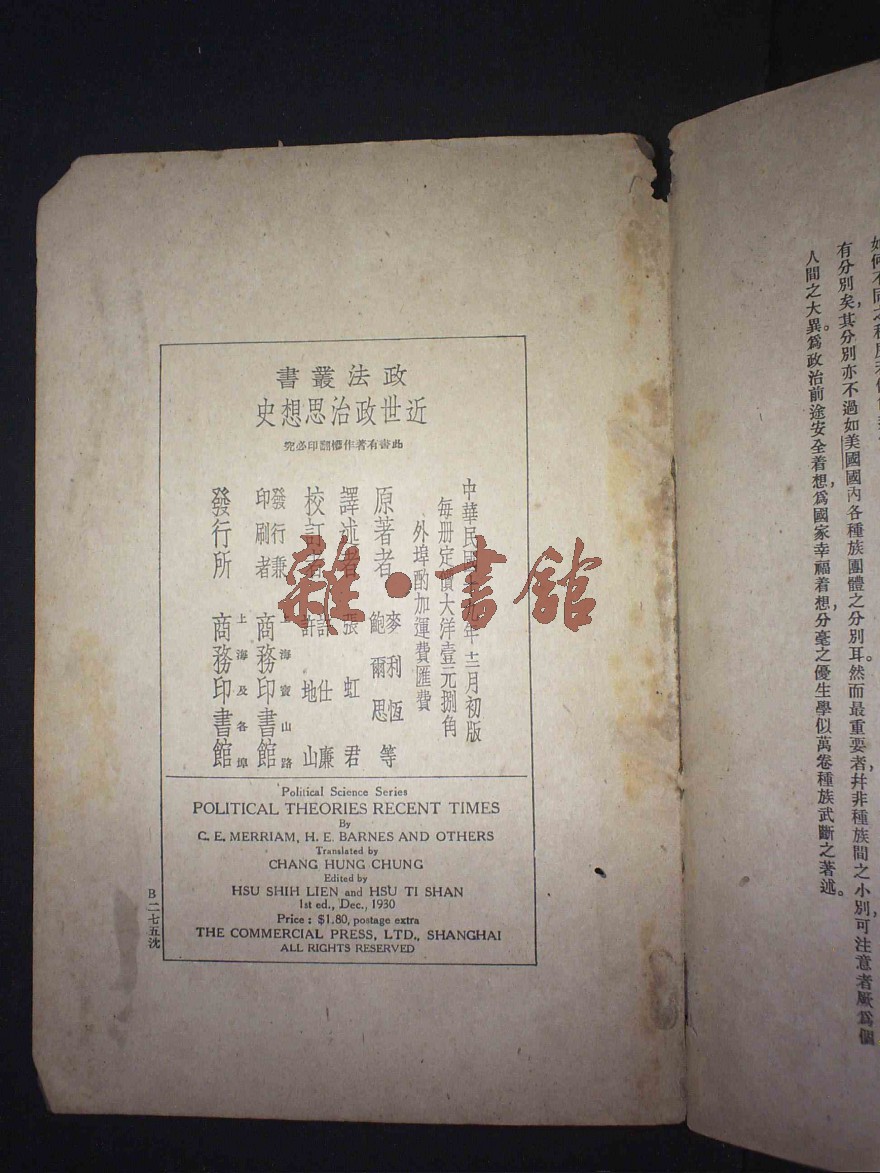 有分別矣,其分別亦不過如美國國內各種族團體之分別耳。然而最重要者,幷非種族間之小別,可注意者厥爲個
人間之大異。爲政治前途安全着想,爲國家幸福着想,分毫之優生學似萬卷種族武斷之著述。
政法叢書
近世政治思想史
此書有著作權翻印必究
中華民國十九年十二月初版
每册定價大洋壹元捌角
外埠酌加運費匯費
原著者 麥利恆
鮑爾思等
譯述者 張虹君
校訂者 許仕廉
許地山
發行兼
印刷者
上海寶山路
商務印書館
發行所
上海及各埠
商務印書館
Political Science Series
POLITICAL THEORIES RECENT TIMES
By
C. E. MERRIAM, H. E. BARNES AND OTHERS
Translated by
CHANG HUNG CHUNG
Edited by
HSU SHIH LIEN and HSU TI SHAN
1st ed., Dec., 1930
Price : $1.80, postage extra
THE COMMERCIAL PRESS, LTD., SHANGHAI
ALL RIGHTS RESERVED
B二七五沈
雜·書館